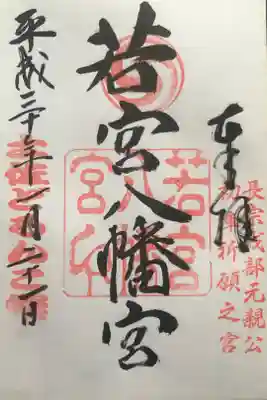 奉拝
長宗我部元親公
初陣祈願之宮
若宮八幡宮
若宮
八幡
宮印
平成三十年一月二十一日